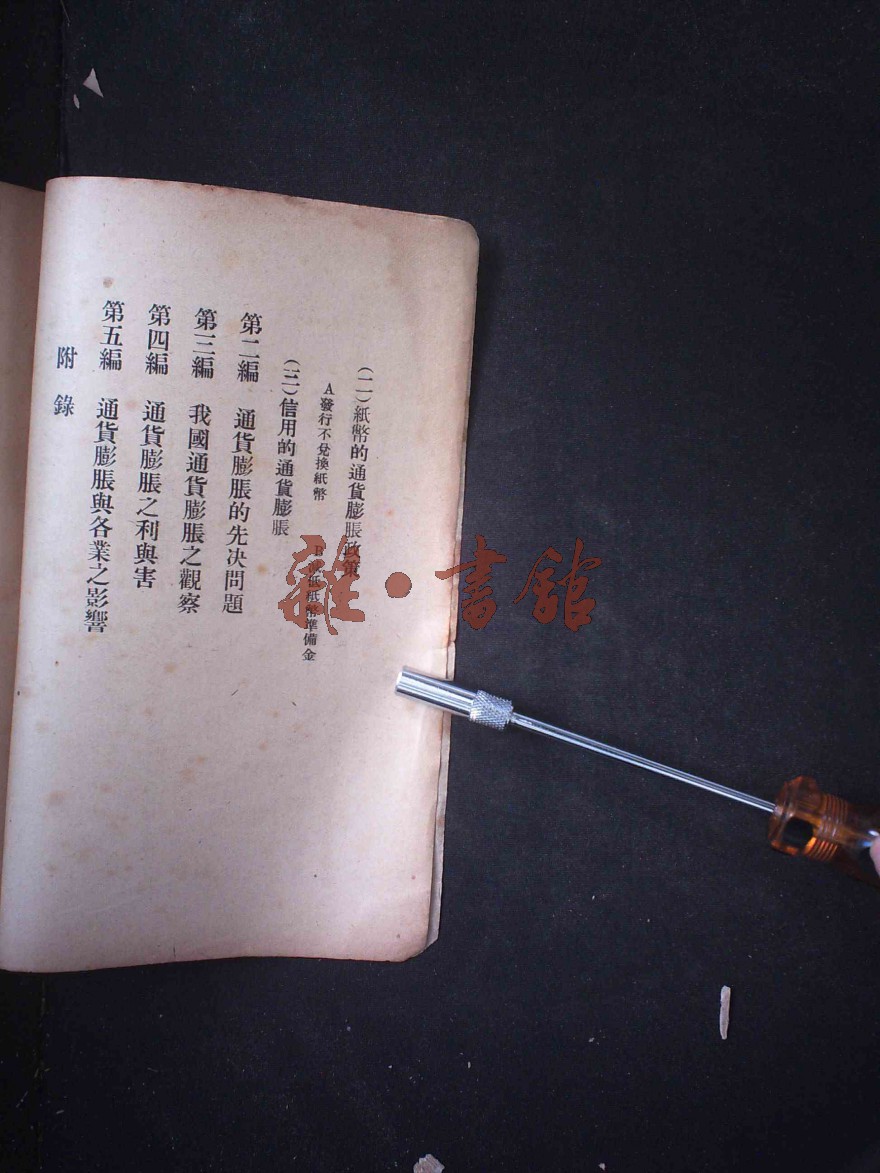 (二)紙幣的通貨膨脹政策
A發行不兌換紙幣　B減低紙幣準備金
(三)信用的通貨膨脹
第二編　通貨膨脹的先决問題
第三編　我國通貨膨脹之觀察
第四編　通貨膨脹之利與害
第五編　通貨膨脹與各業之影響
附錄
雜·書館